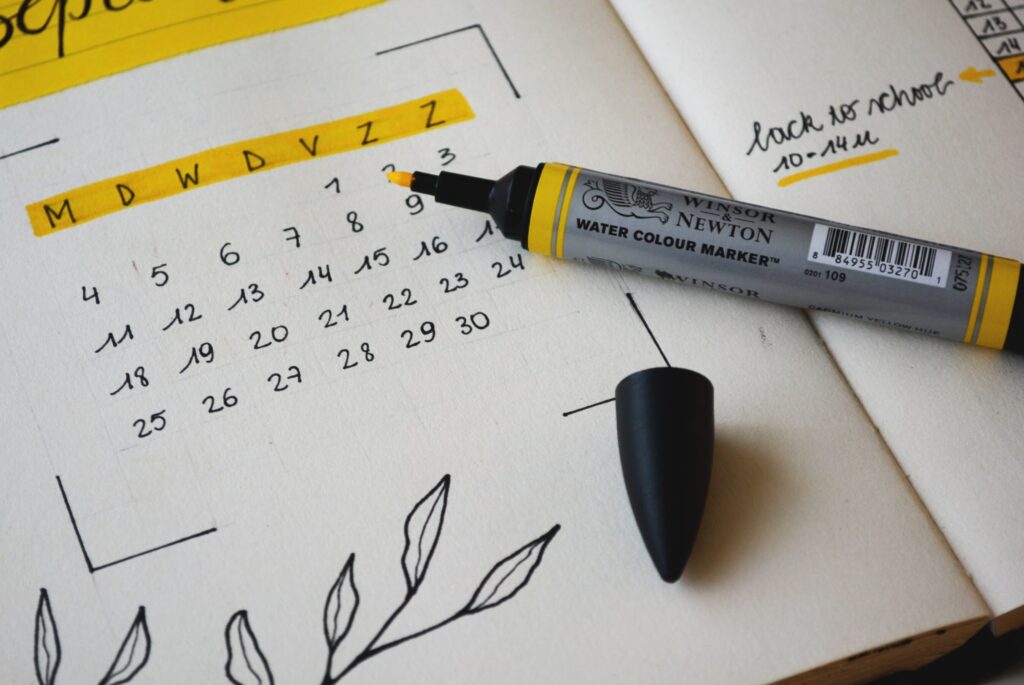 M D W D V Z Z
1 2 3
4 5 6 7 8 9
11 12 13 14 15 16
18 19 20 21 22 23 24
25 26 27 28 29 30
12
13
14
back to school
10-14u
WINSOR
& NEWTON
WATER COLOUR MARKER™
8 84955 03270 1
0201 109
075121
WINSOR
CADMIUM YELLOW HUE